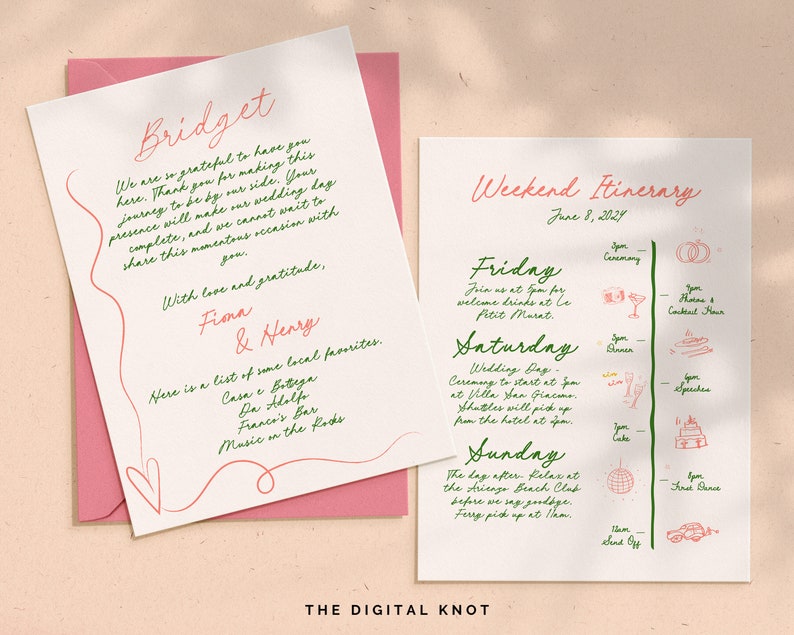 Bridget
We are so grateful to have you
here. Thank you for making this
journey to be by our side. Your
presence will make our wedding day
complete, and we cannot wait to
share this momentous occasion with
you.
With love and gratitude,
Fiona
& Henry
Here is a list of some local favorites.
Casa e Bottega
Da Adolfo
Franco's Bar
Music on the Rocks
Weekend Itinerary
June 8, 2024
Friday
Join us at 5pm for
welcome drinks at Le
Petit Murat.
Saturday
Wedding Day -
Ceremony to start at 3pm
at Villa San Giacomo.
Shuttles will pick up
from the hotel at 2pm.
Sunday
The day after- Relax at
the Arienzo Beach Club
before we say goodbye.
Ferry pick up at 11am.
3pm
Ceremony
4pm
Photos &
Cocktail Hour
5pm
Dinner
6pm
Speeches
7pm
Cake
8pm
First Dance
12am
Send Off
THE DIGITAL KNOT